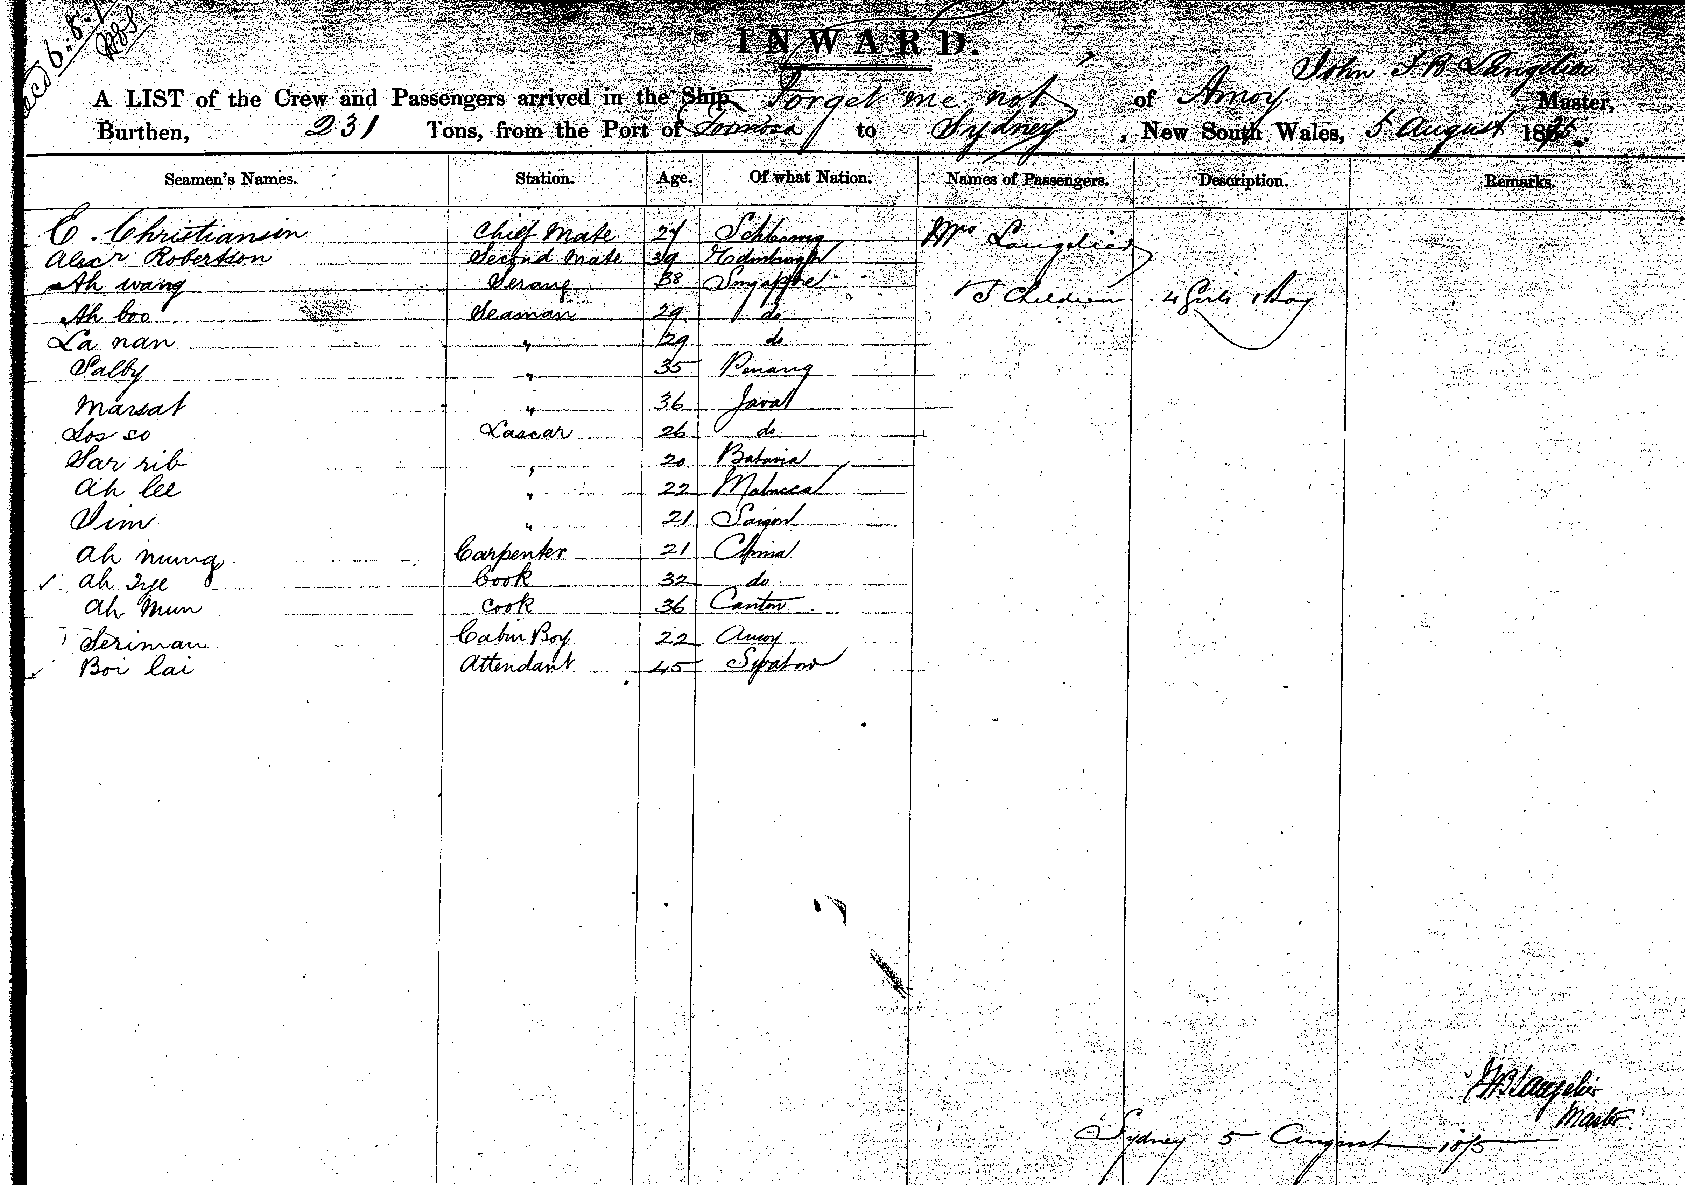 INWARD.
John F. B. Langelier
A LIST of the Crew and Passengers arrived in the Ship Forget me not of Amoy Master,
Burthen, 231 Tons, from the Port of Formosa to Sydney, New South Wales, 5 August 1875.
Seamen's Names. Station. Age. Of what Nation. Names of Passengers. Description. Remarks.
E. Christiansen Chief Mate 27 Schleswig Mrs Langelier
Alexr Robertson Second Mate 39 Edinburgh
Ah wang Serang 38 Singapore 5 Children 4 Girls 1 Boy
Ah boo Seaman 29 do
La nan " 29 do
Salby " 35 Penang
Marsat " 36 Java
Sos so Lascar 26 do
Sar rib " 20 Batavia
Ah lee " 22 Malacca
Jim " 21 Saigon
Ah nung Carpenter 21 China
Ah Tye Cook 32 do
Ah Mun Cook 36 Canton
Seriman Cabin Boy 22 Amoy
Boi lai Attendant 45 Swatow
Langelier
Master
Sydney 5 August 1875